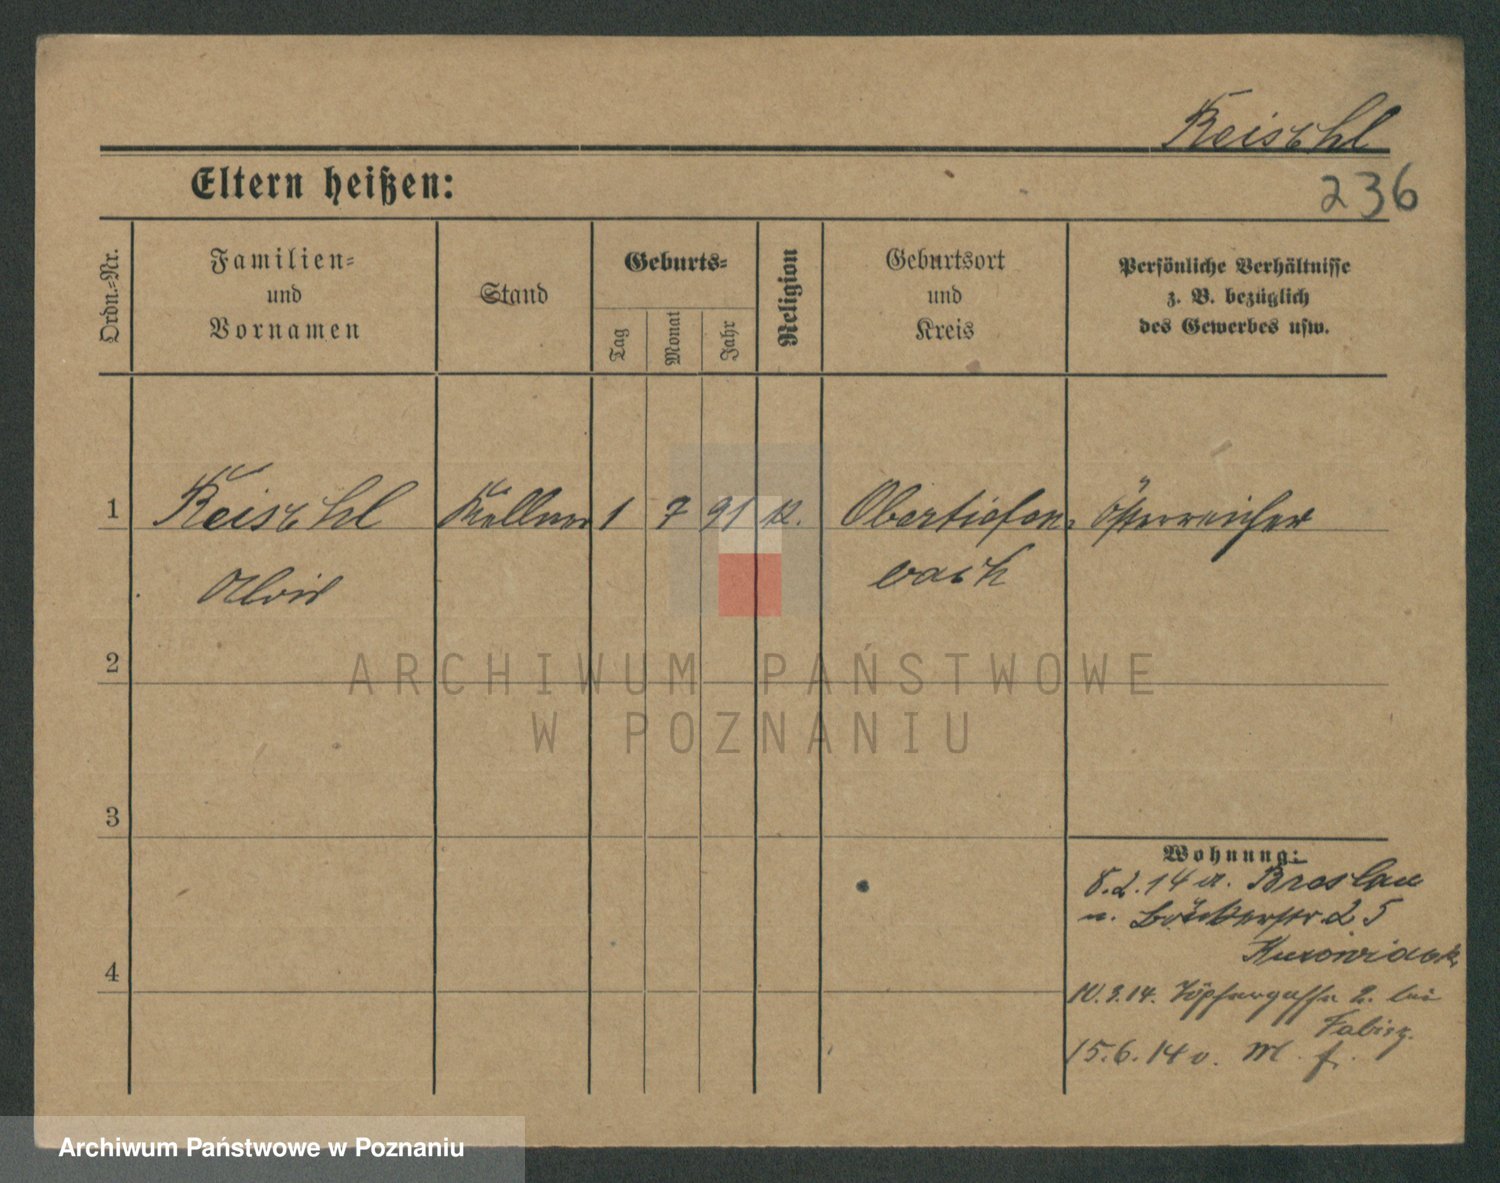 Reischl
Eltern heißen:
236
Ordn.=Nr.
Familien=
und
Vornamen
Stand
Geburts=
Tag
Monat
Jahr
Religion
Geburtsort
und
Kreis
Persönliche Verhältnisse
z. B. bezüglich
des Gewerbes usw.
1
Reischl
Kellner
1
7
91
k.
Obertiefen-
Österreicher
Alois
bach
ARCHIWUM PAŃSTWOWE
2
W POZNANIU
3
Wohnung:
8.2.14 a. Breslau
n. Bäckerstr. 25
4
10.3.14. Töpfergasse 2. bei
Fabisz.
15.6.14 v. M. f.
Archiwum Państwowe w Poznaniu